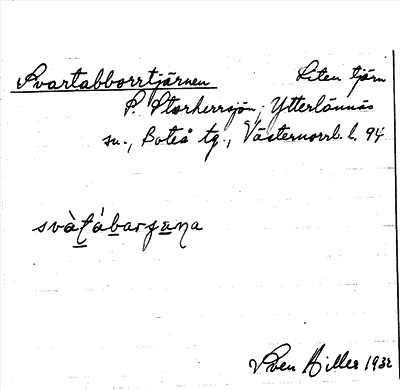 Svartabborrtjärnen Liten tjärn
P. Storherrsjön, Ytterlännäs
sn., Boteå tg., Västernorrl. l. 94
Sven Hiller 1932